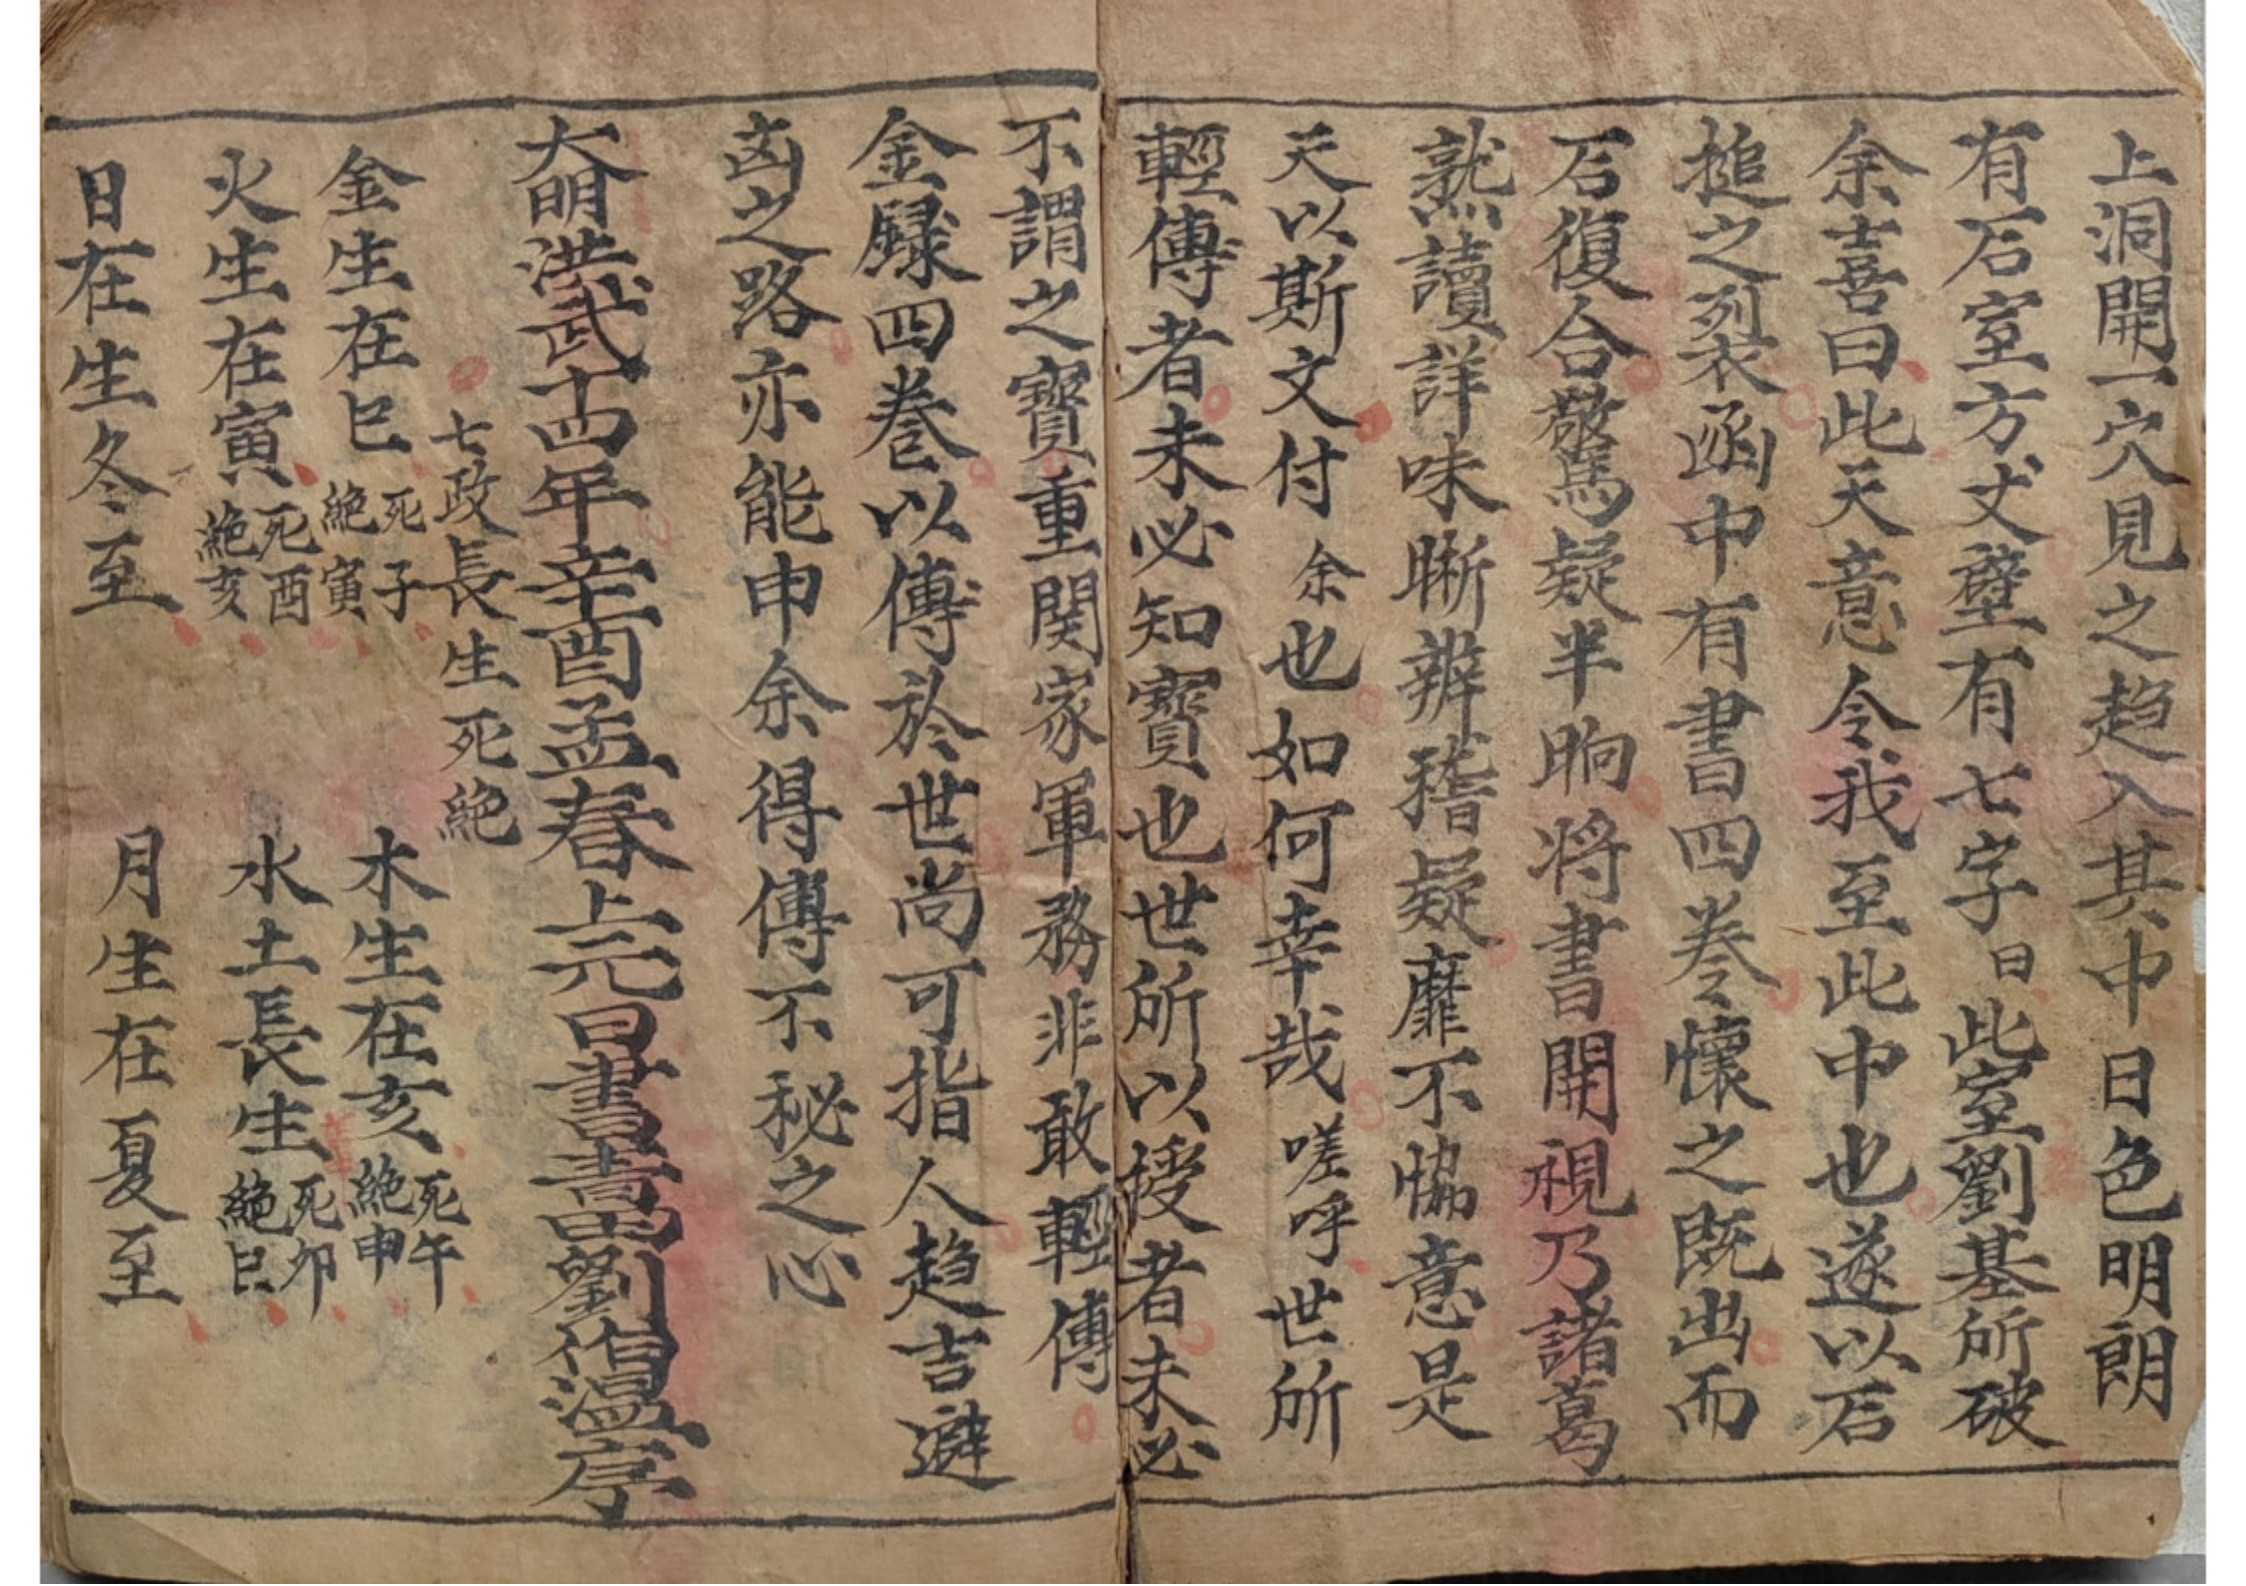 上洞開一穴見之趋入其中日色明朗
有石室方丈壁有七字曰此室劉基所破
余喜曰此天意令我至此中也遂以石
搥之裂衣函中有書四巻懷之既出而
石復合驚疑半晌将書開視乃諸葛
熟讀詳味晰辨稽疑靡不恊意是
天以斯文付余也如何幸哉嗟呼世所
輕傳者未必知寶也世所以授者未必
不謂之寶重関家軍務非敢輕傳
金録四巻以傳於世尚可指人趋吉避
凶之路亦能申余得傳不秘之心
大明洪武十四年辛酉孟春上元日書壽劉伯温序
七政長生死絶
金生在巳 死子 絶寅 木生在亥 死午 絶申
火生在寅 死酉 絶亥 水土長生 死卯 絶巳
日在生冬至 月生在夏至